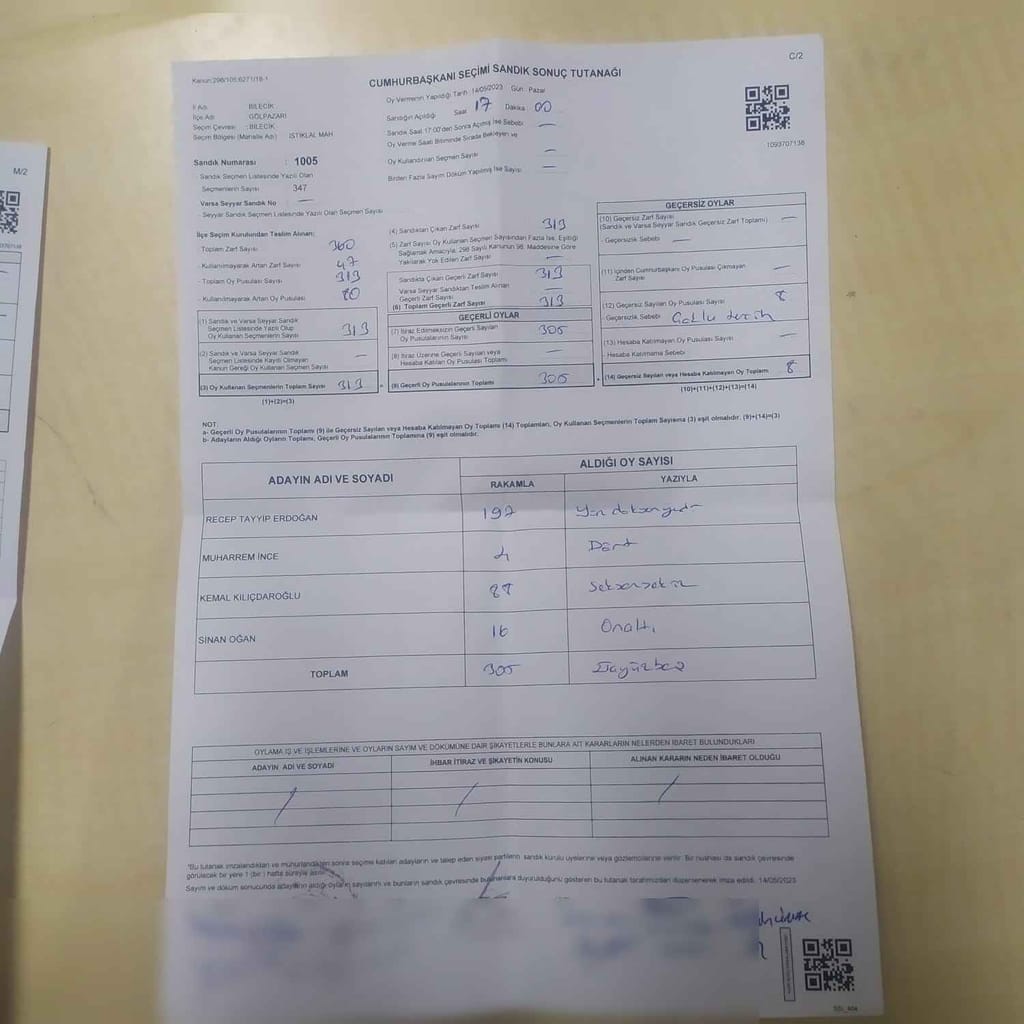 C/2
Kanun:298/105;6271/18-1
CUMHURBAŞKANI SEÇİMİ SANDIK SONUÇ TUTANAĞI
İl Adı : BİLECİK
İlçe Adı : GÖLPAZARI
Seçim Çevresi : BİLECİK
Seçim Bölgesi (Mahalle Adı) : İSTİKLAL MAH
Sandık Numarası : 1005
- Sandık Seçmen Listesinde Yazılı Olan
Seçmenlerin Sayısı 347
Varsa Seyyar Sandık No —
- Seyyar Sandık Listesinde Yazılı Olan Seçmen Sayısı
Oy Vermenin Yapıldığı Tarih : 14/05/2023 Gün : Pazar
Sandığın Açıldığı Saat 17 Dakika : 00
Sandık Saat 17:00'den Sonra Açılmış İse Sebebi —
Oy Verme Saati Bitiminde Sırada Bekleyen ve
Oy Kullandırılan Seçmen Sayısı —
Birden Fazla Sayım Döküm Yapılmış İse Sayısı —
1093707138
İlçe Seçim Kurulundan Teslim Alınan:
Toplam Zarf Sayısı 360
- Kullanılmayarak Artan Zarf Sayısı 47
- Toplam Oy Pusulası Sayısı 313
- Kullanılmayarak Artan Oy Pusulası
(1) Sandık ve Varsa Seyyar Sandık
Seçmen Listesinde Yazılı Olup
Oy Kullanan Seçmenlerin Sayısı 313
(2) Sandık ve Varsa Seyyar Sandık
Seçmen Listesinde Kayıtlı Olmayan
Kanun Gereği Oy Kullanan Seçmen Sayısı —
(3) Oy Kullanan Seçmenlerin Toplam Sayısı 313
(1)+(2)=(3)
(4) Sandıktan Çıkan Zarf Sayısı 313
(5) Zarf Sayısı Oy Kullanan Seçmen Sayısından Fazla İse, Eşitliği
Sağlamak Amacıyla; 298 Sayılı Kanunun 98. Maddesine Göre
Yakılarak Yok Edilen Zarf Sayısı —
Sandıkta Çıkan Geçerli Zarf Sayısı 313
Varsa Seyyar Sandıktan Teslim Alınan
Geçerli Zarf Sayısı —
(6) Toplam Geçerli Zarf Sayısı 313
GEÇERLİ OYLAR
(7) İtiraz Edilmeksizin Geçerli Sayılan
Oy Pusulasının Sayısı 305
(8) İtiraz Üzerine Geçerli Sayılan veya
Hesaba Katılan Oy Pusulası Toplamı —
(9) Geçerli Oy Pusulalarının Toplamı 305
GEÇERSİZ OYLAR
(10) Geçersiz Zarf Sayısı
(Sandık ve Varsa Seyyar Sandık Geçersiz Zarf Toplamı) —
- Geçersizlik Sebebi —
(11) İçinden Cumhurbaşkanı Oy Pusulası Çıkmayan
Zarf Sayısı —
(12) Geçersiz Sayılan Oy Pusulası Sayısı 8
- Geçersizlik Sebebi Çoklu tercih
(13) Hesaba Katılmayan Oy Pusulası Sayısı —
- Hesaba Katılmama Sebebi
(14) Geçersiz Sayılan veya Hesaba Katılmayan Oy Toplamı 8
(10)+(11)+(12)+(13)=(14)
NOT:
a- Geçerli Oy Pusulalarının Toplamı (9) ile Geçersiz Sayılan veya Hesaba Katılmayan Oy Toplamı (14) Toplamları, Oy Kullanan Seçmenlerin Toplam Sayısına (3) eşit olmalıdır. (9)+(14)=(3)
b- Adayların Aldığı Oyların Toplamı, Geçerli Oy Pusulalarının Toplamına (9) eşit olmalıdır.
ADAYIN ADI VE SOYADI ALDIĞI OY SAYISI
RAKAMLA YAZIYLA
RECEP TAYYİP ERDOĞAN 197 Yüz doksanyedi
MUHARREM İNCE 4 Dört
KEMAL KILIÇDAROĞLU 88 Seksensekiz
SİNAN OĞAN 16 Onaltı
TOPLAM 305 Üçyüzbeş
OYLAMA İŞ VE İŞLEMLERİNE VE OYLARIN SAYIM VE DÖKÜMÜNE DAİR ŞİKAYETLERLE BUNLARA AİT KARARLARIN NELERDEN İBARET BULUNDUKLARI
ADAYIN ADI VE SOYADI İHBAR İTİRAZ VE ŞİKAYETİN KONUSU ALINAN KARARIN NEDEN İBARET OLDUĞU
/ / /
"Bu tutanak imzalandıktan ve mühürlendikten sonra seçime katılan adayların ve talep eden siyasi partilerin sandık kurulu üyelerine veya gözlemcilerine verilir. Bir nüshası da sandık çevresinde
görülecek bir yere 1 (bir) hafta süreyle asılır.
Sayım ve döküm sonucunda adayların aldığı oyların sayılarını ve bunların sandık çevresinde bulunanlara duyurulduğunu gösteren bu tutanak tarafımızdan düzenlenerek imza edildi. 14/05/2023
M/2